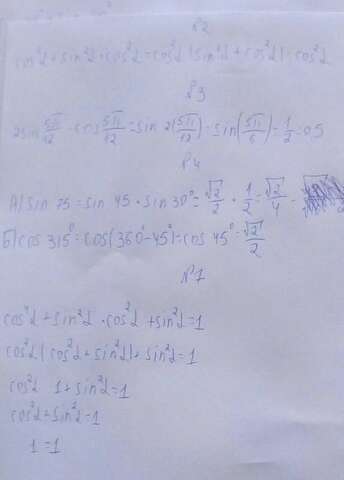 №2
cos⁴α + sin²α · cos²α = cos²α (sin²α + cos²α) = cos²α
№3
2 sin 5π/12 · cos 5π/12 = sin 2(5π/12) = sin(5π/6) = 1/2 = 0,5
№4
А) sin 75 = sin 45 · sin 30° = √2/2 · 1/2 = √2/4 =
Б) cos 315° = cos(360° - 45°) = cos 45° = √2/2
№1
cos⁴α + sin²α · cos²α + sin²α = 1
cos²α (cos²α + sin²α) + sin²α = 1
cos²α 1 + sin²α = 1
cos²α + sin²α = 1
1 = 1